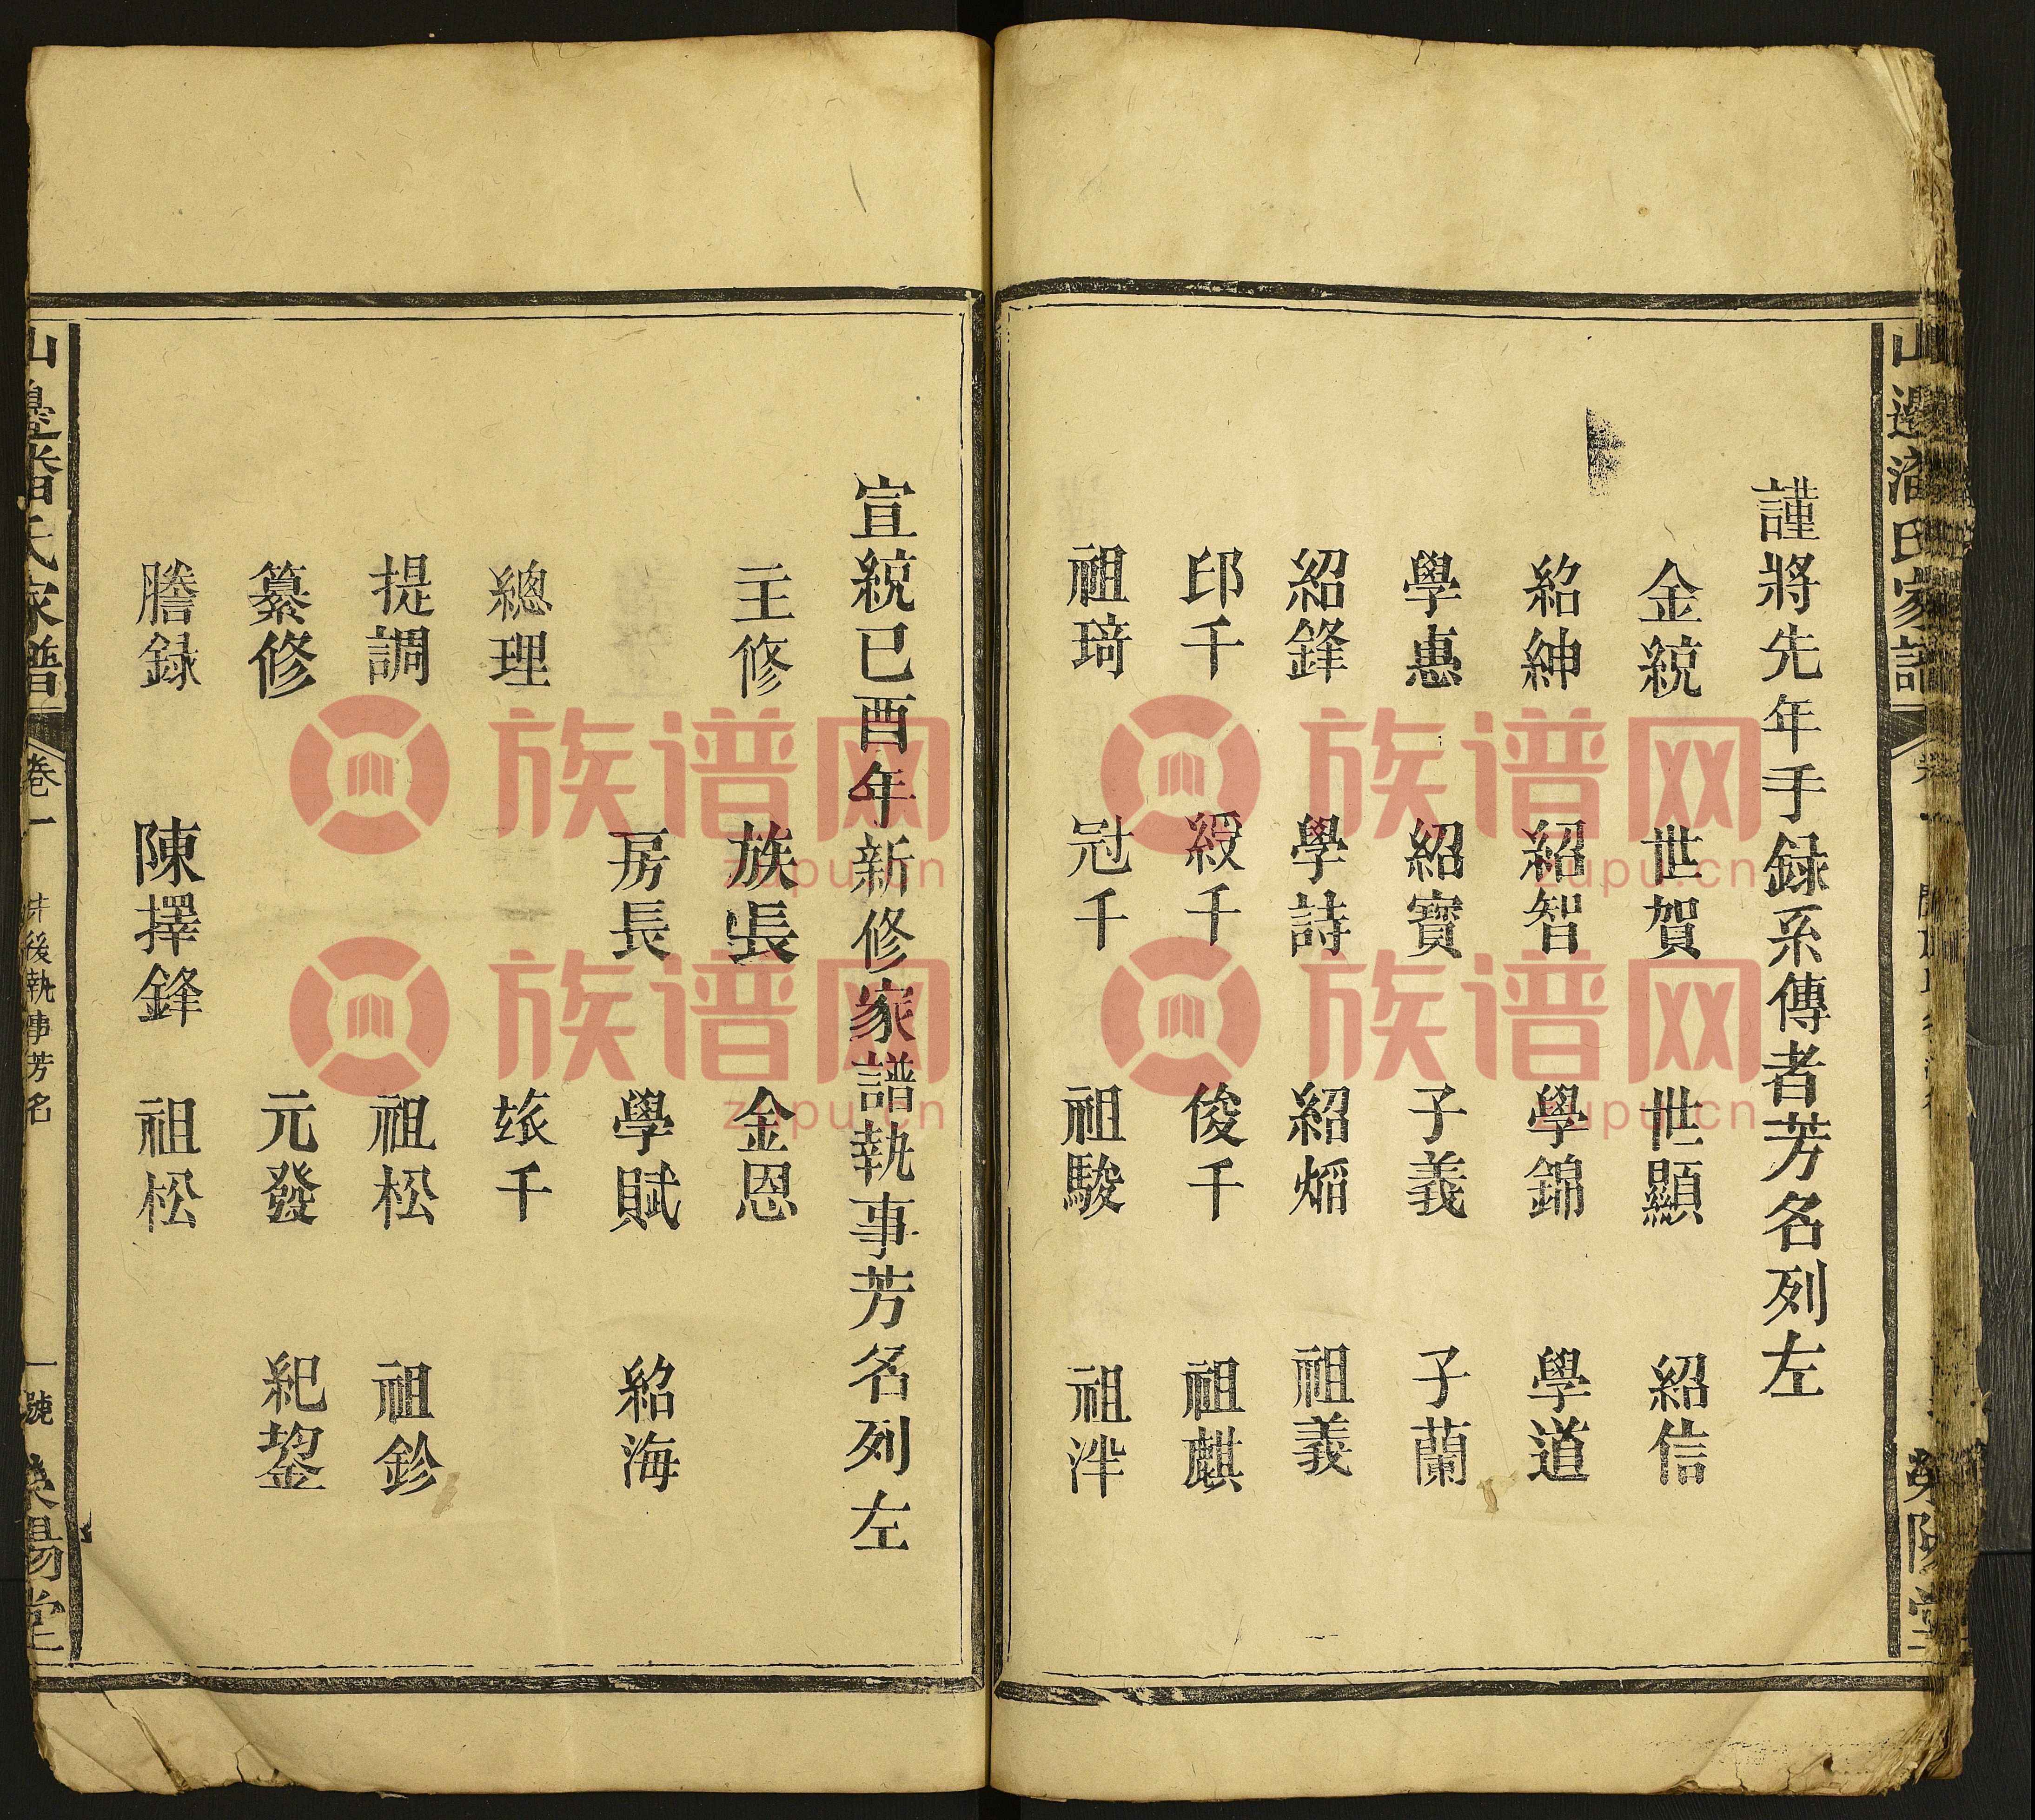 山邊潘氏家譜
謹將先年手録系傳者芳名列左
金統 世賀 世顯 紹信
紹紳 紹智 學錦 學道
學惠 紹寶 子義 子蘭
紹鋒 學詩 紹熖 祖義
邱千 綬千 俊千 祖麒
祖琦 冠千 祖駿 祖泮
宣統已酉年新修家譜執事芳名列左
主修 族長 金恩
房長 學賦 紹海
總理 竤千
提調 祖松 祖鉁
纂修 元發 紀鋆
謄録 陳擇鋒 祖松
山邊潘氏家譜 卷一 後執事芳名 一號 滎陽堂
族谱网
zupu.cn
族谱网
zupu.cn
族谱网
zupu.cn
族谱网
zupu.cn